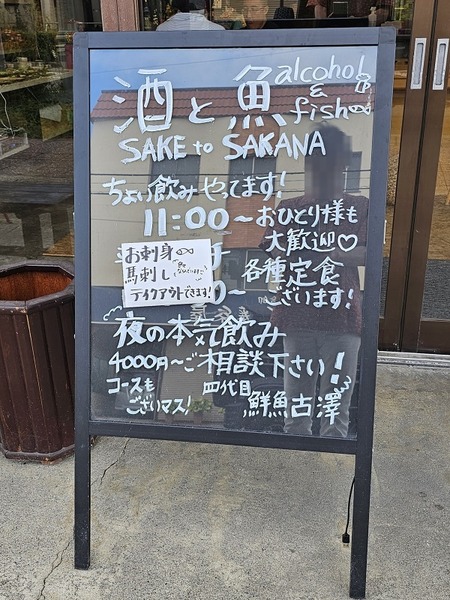 酒と魚 alcohol & fish
SAKE to SAKANA
ちょい飲みやってます!
11:00〜おひとり様も
大歓迎♡
お刺身
馬刺し
テイクアウトできます!
各種定食
ございます!
夜の本気飲み
4000円〜ご相談下さい!
コースも
ございマス!
四代目
鮮魚古澤